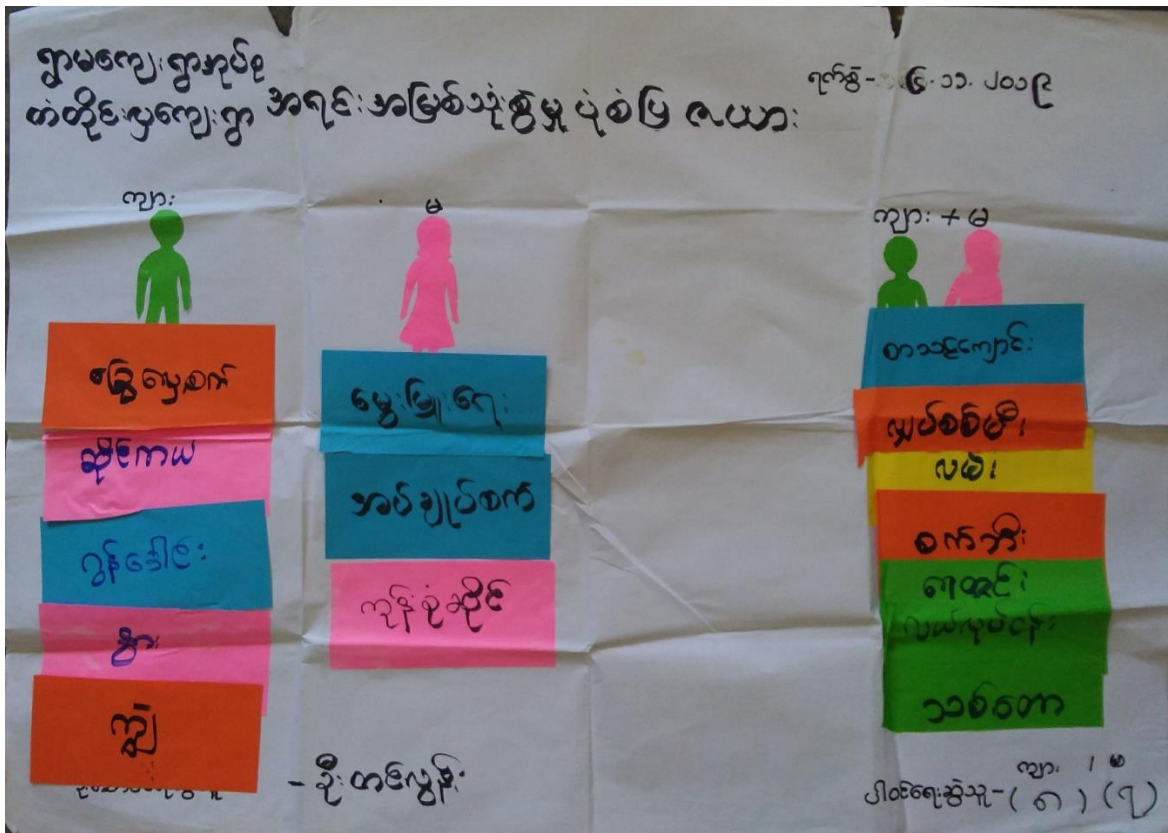 ရွာမကျေးရွာအုပ်စု
တံတိုင်းလှကျေးရွာ အရင်းအမြစ်သုံးစွဲမှု ပုံစံပြ ဇယား
ရက်စွဲ - ၆.၁၁.၂၀၁၉
ကျား
မ
ကျား + မ
ခြွေလှေ့စက်
ဆိုင်ကယ်
ဂွန်ဒေါင်း
နွား
ကျွဲ
မွေးမြူရေး
အပ်ချုပ်စက်
ကုန်စုံဆိုင်
စာသင်ကျောင်း
လျှပ်စစ်မီး
လမ်း
စက်ဘီး
ရေတွင်း
လယ်လုပ်ငန်း
သစ်တော
- ဦးတင်လွန်း
ပါဝင်ရေးဆွဲသူ - ကျား / မ
(၈) (၇)